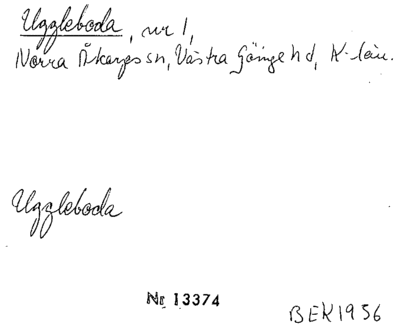 Uggleboda, nr 1,
Norra Åkarps sn, Västra Göinge hd, K-län.
Uggleboda
Nr 13374
BEK 1956